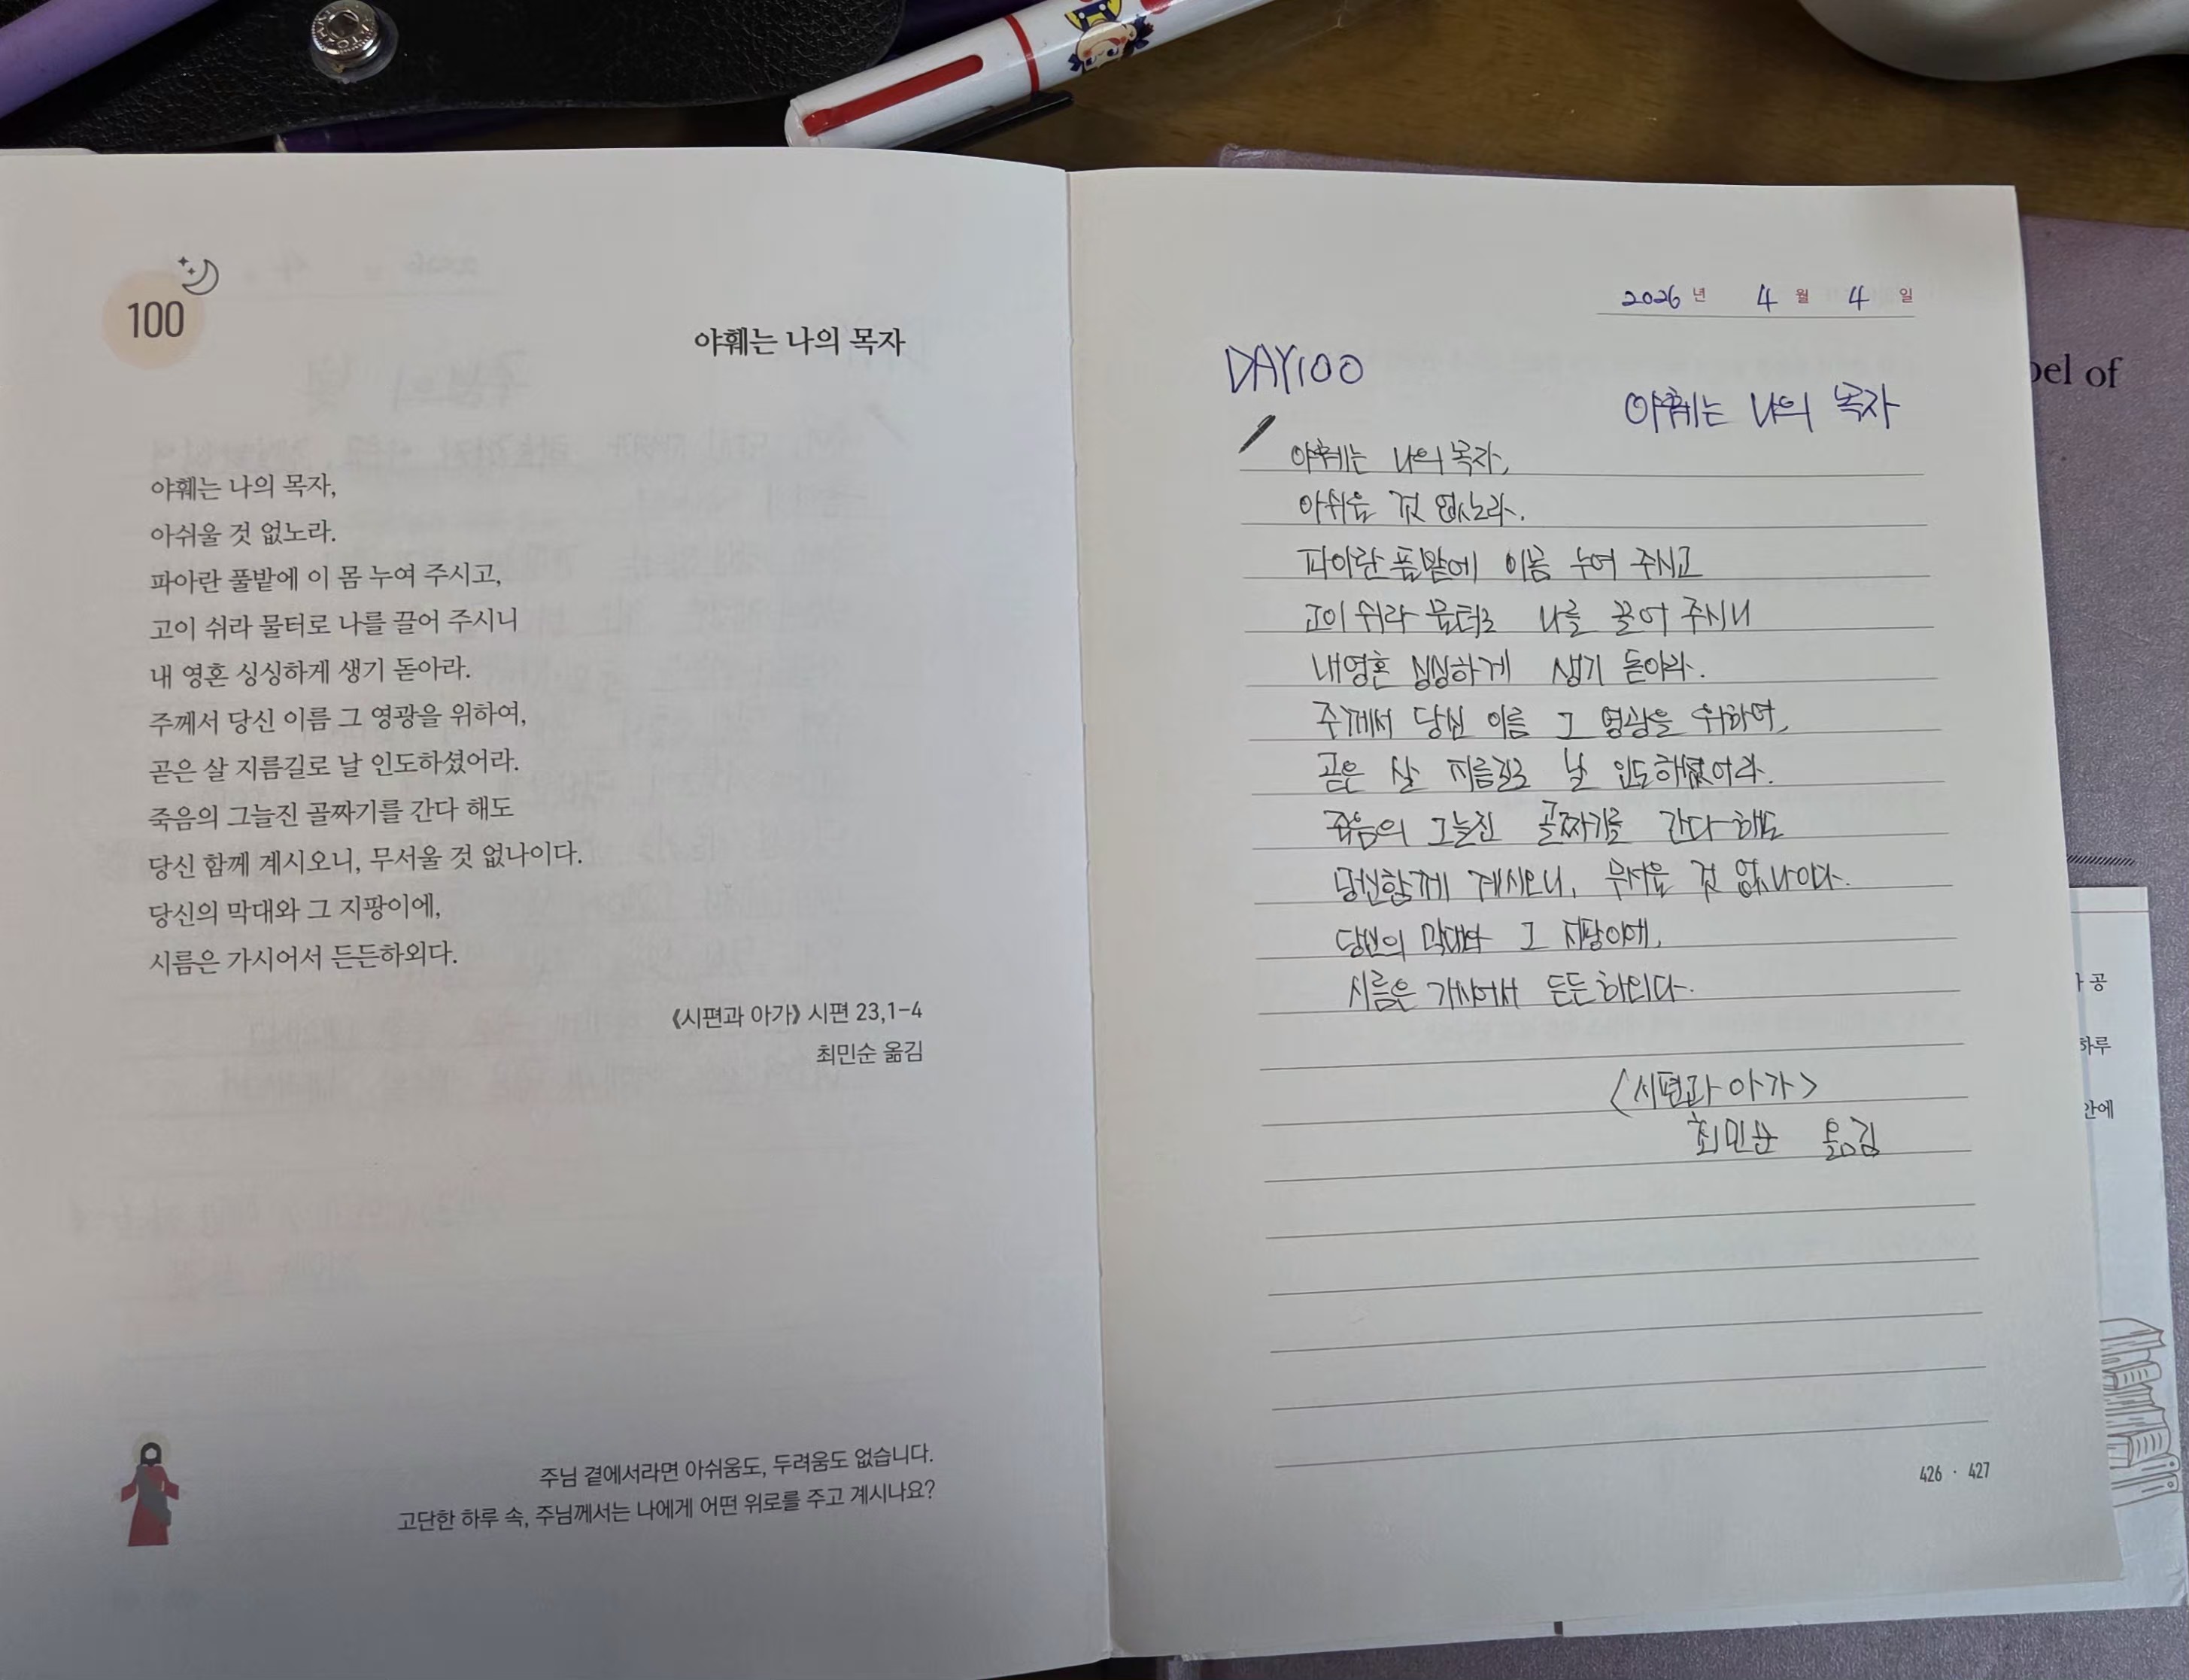 100
야훼는 나의 목자
야훼는 나의 목자,
아쉬울 것 없노라.
파아란 풀밭에 이 몸 누여 주시고,
고이 쉬라 물터로 나를 끌어 주시니
내 영혼 싱싱하게 생기 돋아라.
주께서 당신 이름 그 영광을 위하여,
곧은 살 지름길로 날 인도하셨어라.
죽음의 그늘진 골짜기를 간다 해도
당신 함께 계시오니, 무서울 것 없나이다.
당신의 막대와 그 지팡이에,
시름은 가시어서 든든하외다.
《시편과 아가》 시편 23,1-4
최민순 옮김
주님 곁에서라면 아쉬움도, 두려움도 없습니다.
고단한 하루 속, 주님께서는 나에게 어떤 위로를 주고 계시나요?
2026 년 4 월 4 일
DAY100
야훼는 나의 목자
야훼는 나의 목자,
아쉬울 것 없노라.
파아란 풀밭에 이몸 누여 주시고
고이 쉬라 물터로 나를 끌어 주시니
내영혼 싱싱하게 생기 돋아라.
주께서 당신 이름 그 영광을 위하여,
곧은 살 지름길로 날
죽음의 그늘진 골짜기를 간다 해도
당신함께 계시오니, 무서울 것 없나이다.
당신의 막대와 그 지팡이에,
시름은 가시어서 든든
<시편과 아가>
최민순 옮김
426 · 427
pel of
공
하루
안에